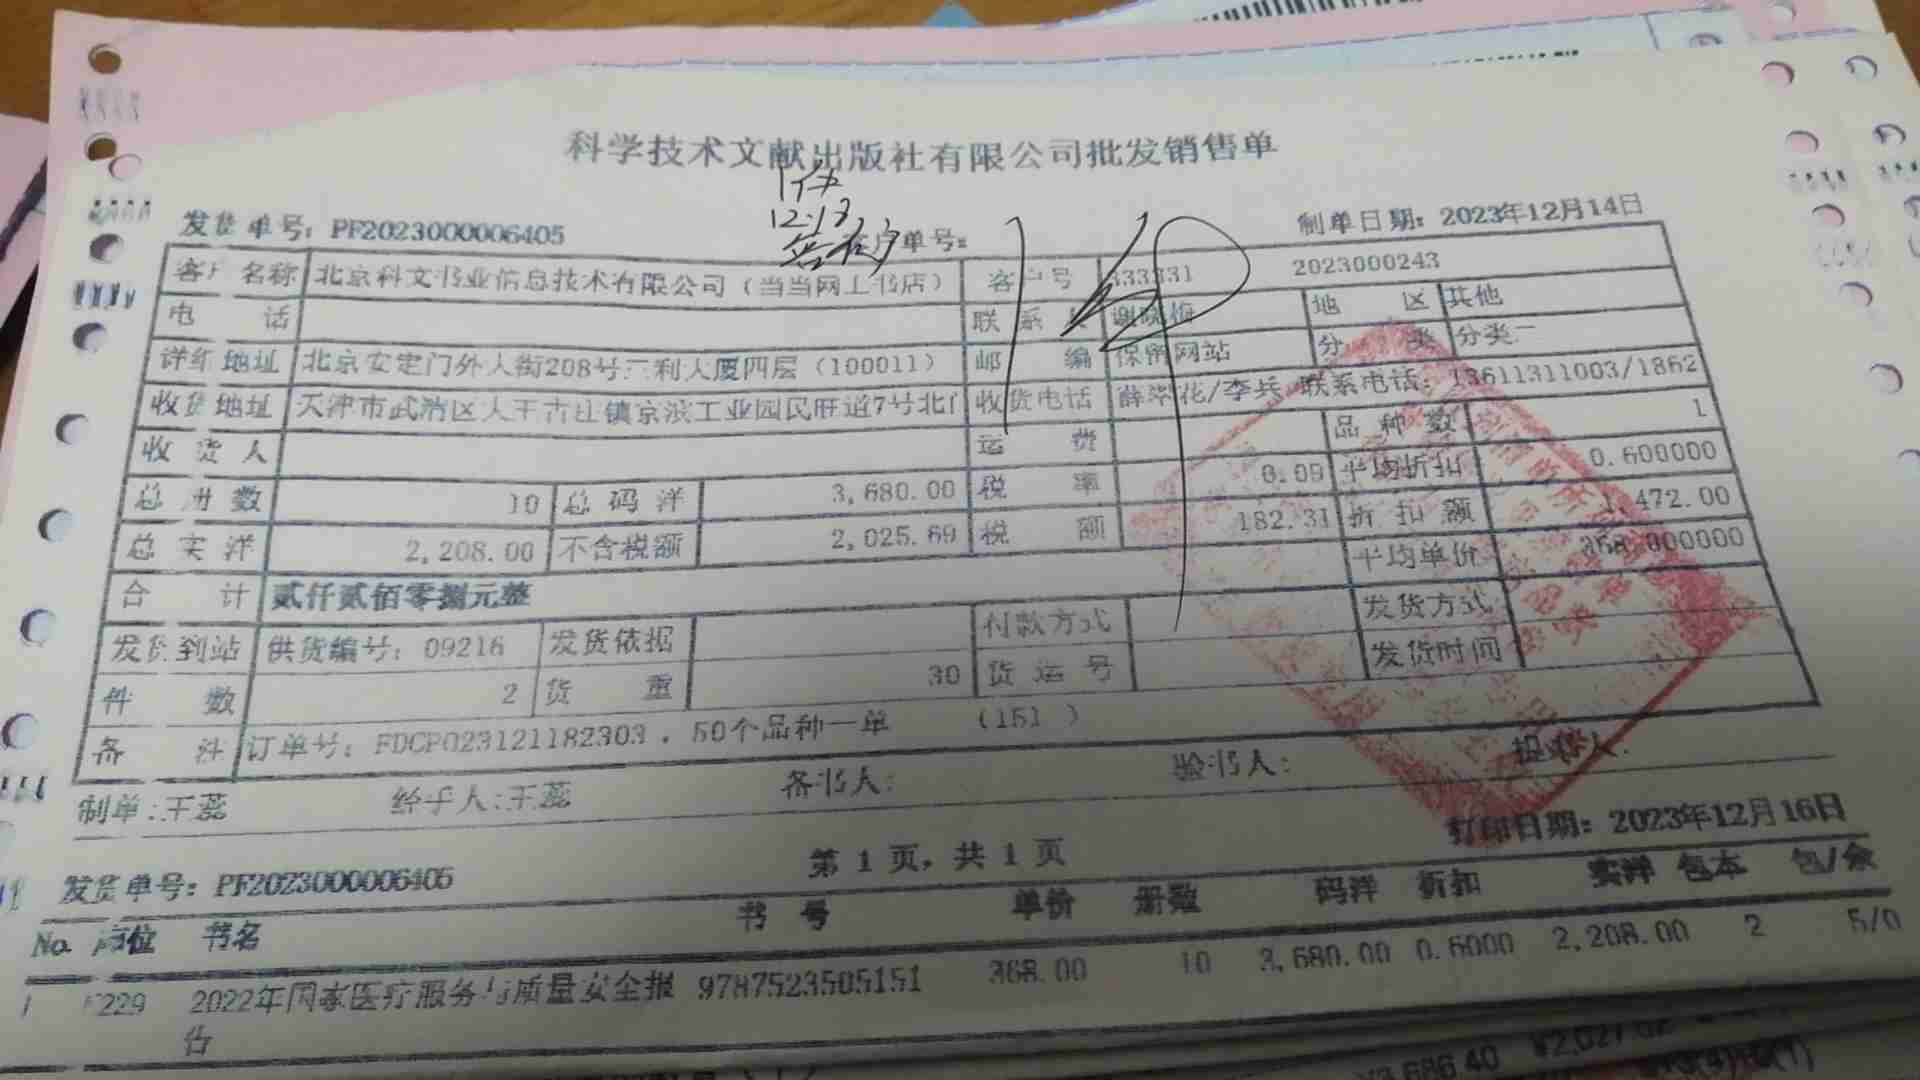 科学技术文献出版社有限公司批发销售单
1件
12.13
发货单号: PF2023000006405 客户单号: 制单日期: 2023年12月14日
客户名称 北京科文书业信息技术有限公司(当当网上书店) 客户号 333331 2023000243
电话 联系人 地区 其他
详细地址 北京安定门外大街208号三利大厦四层(100011) 邮编 保留网站 分类 分类二
收货地址 天津市武清区大王古庄镇京滨工业园民旺道7号北门 收货电话 薛翠花/李兵 联系电话: 13611311003/1862
收货人 运费 品种数 1
总册数 10 总码洋 3,680.00 税率 0.09 平均折扣 0.600000
总实洋 2,208.00 不含税额 2,025.69 税额 182.31 折扣额 1,472.00
合计 贰仟贰佰零捌元整 平均单价 368.000000
发货到站 供货编号: 09216 发货依据 付款方式 发货方式
件数 2 货重 30 货运号 发货时间
备注 订单号: FDCP023121182303 . 50个品种一单 (151 )
制单:王蕊 经手人:王蕊 备书人: 验书人:
打印日期: 2023年12月16日
发货单号: PF2023000006405 第 1 页, 共 1 页
No. 书名 书号 单价 册数 码洋 折扣 实洋 包本 包/余
1 2022年国家医疗服务与质量安全报告 9787523505151 368.00 10 3,680.00 0.6000 2,208.00 2 5/0